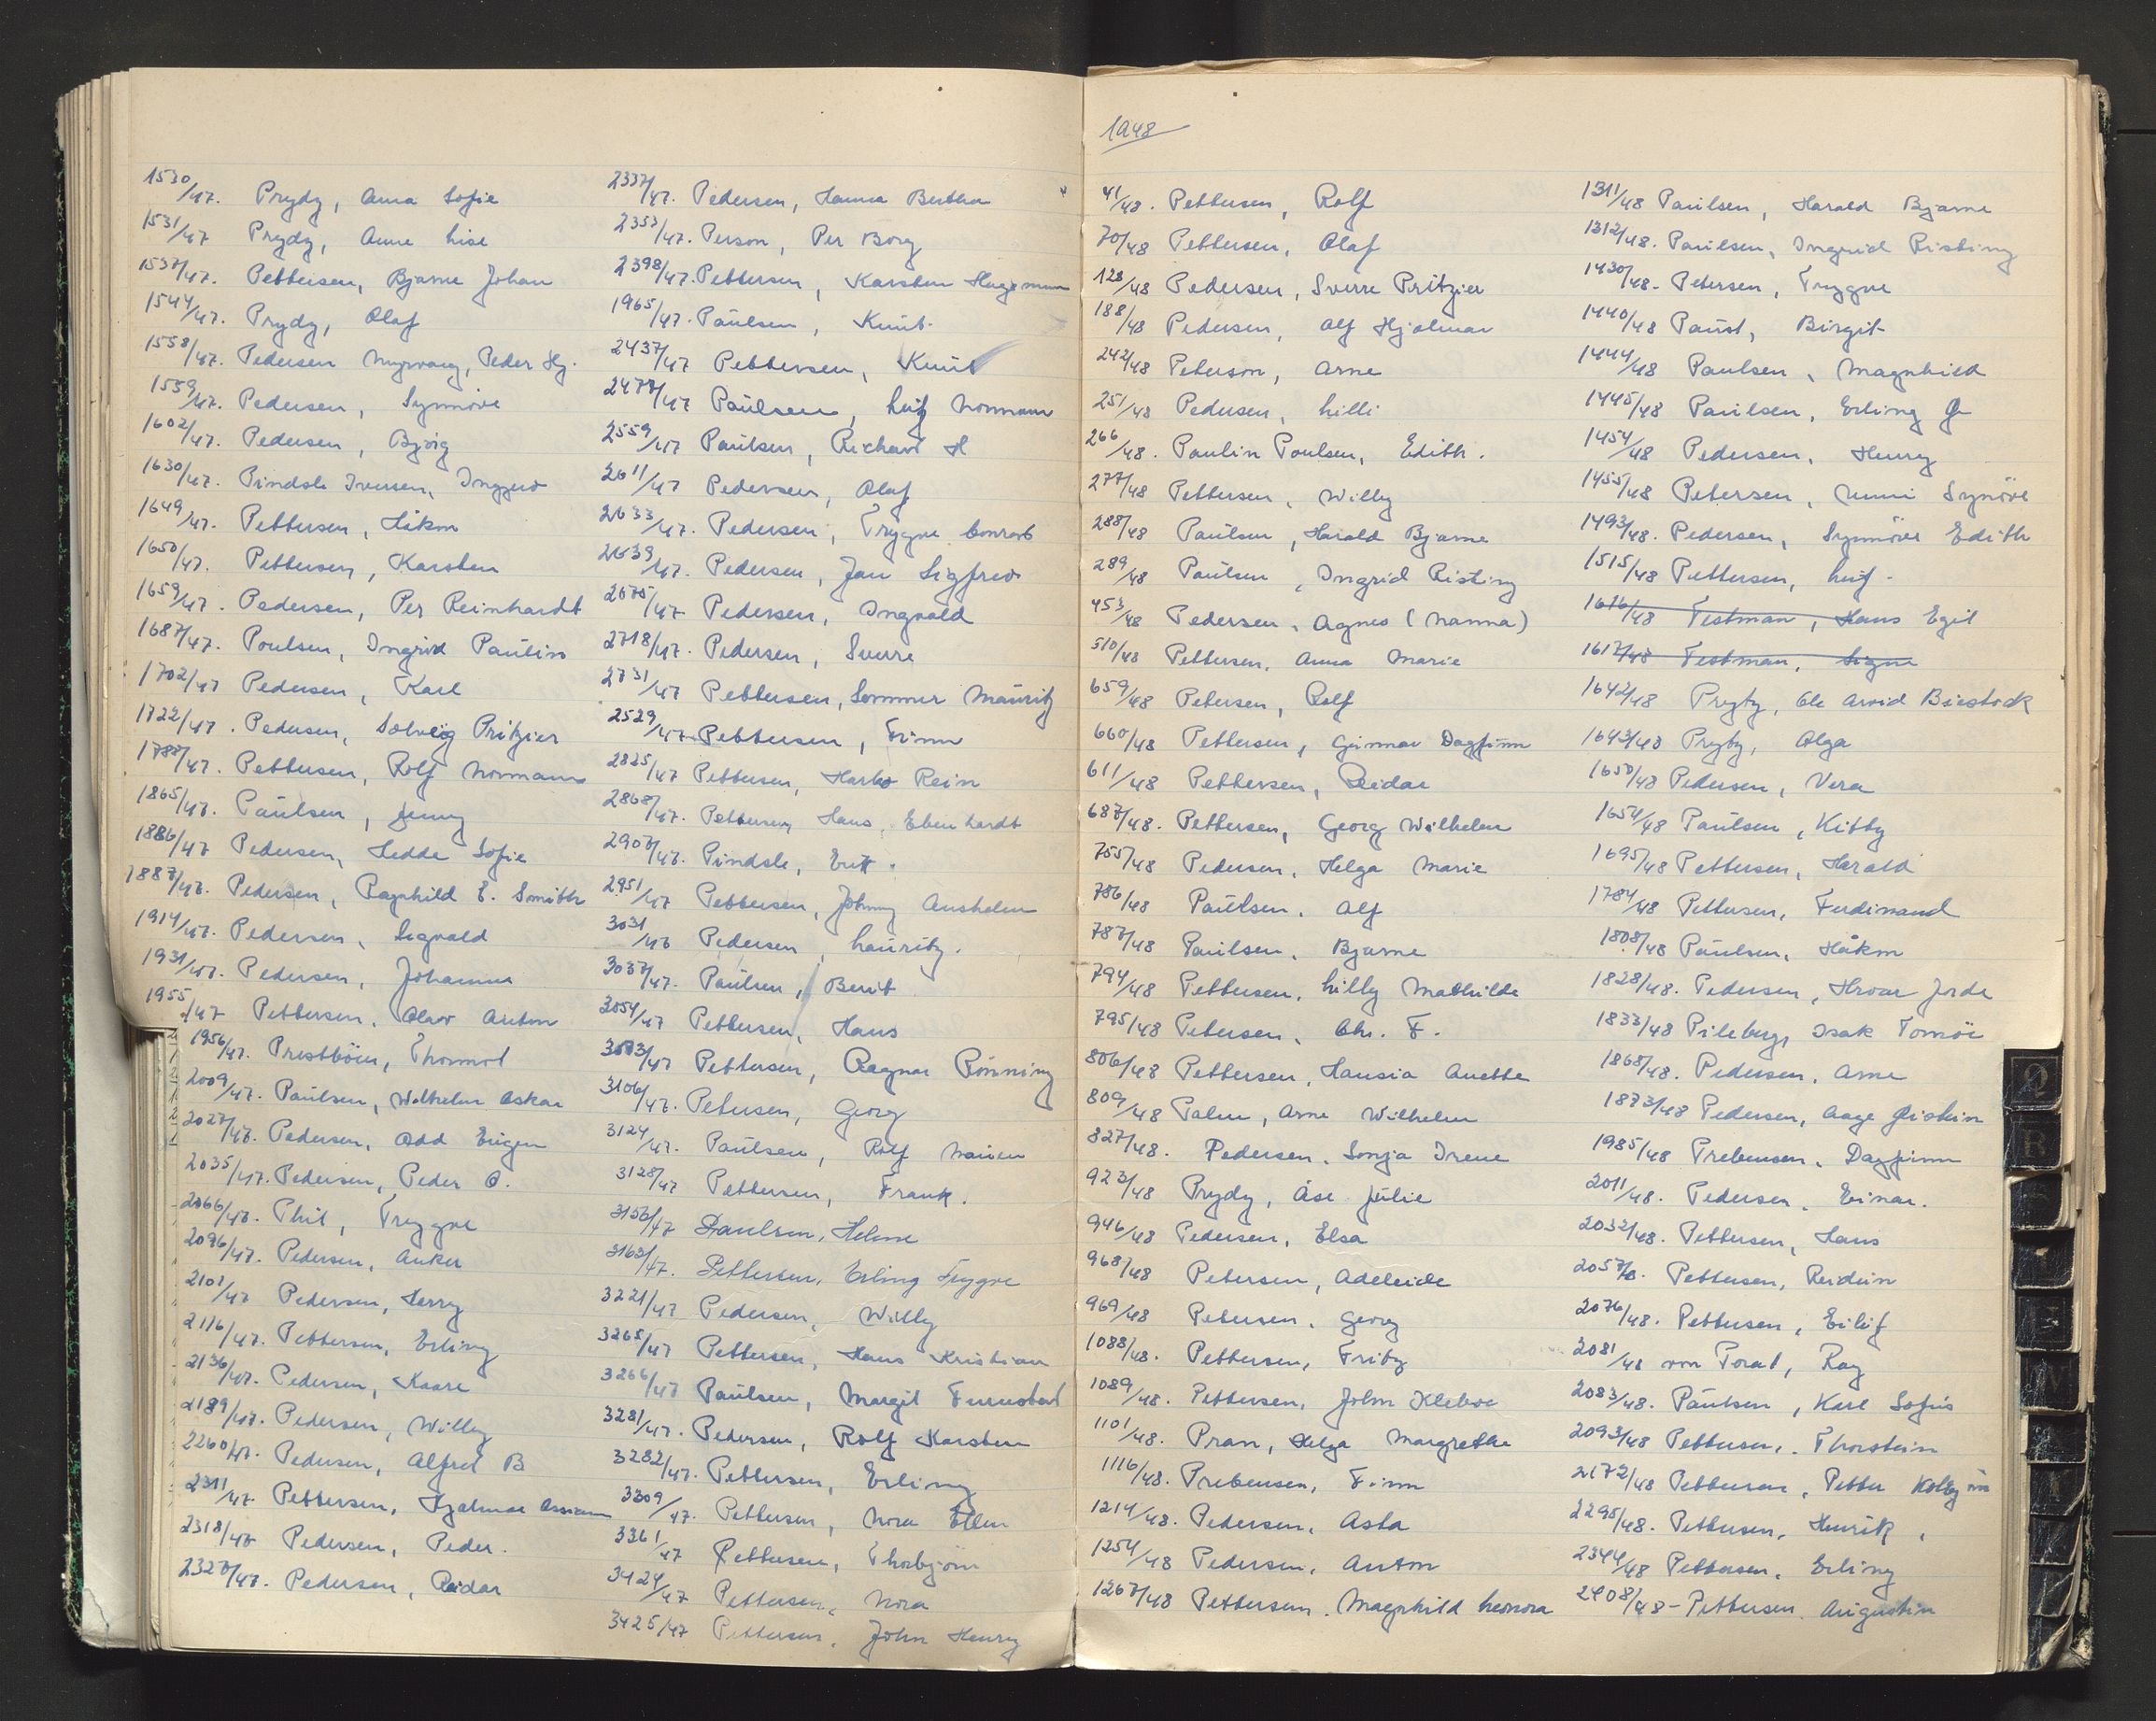 1530/47. Prydz, Anna Sofie
1531/47 Prydz, Anne Lise
1537/47. Pettersen, Bjarne Johan
1544/47. Prydz, Olaf
1558/47. Pedersen Myrvang, Peder Hj.
1559/47. Pedersen, Synnöve
1602/47. Pedersen, Björg
1630/47. Pindsle Iversen, Inggerd
1649/47. Pettersen, Håkon
1650/47. Pettersen, Karsten
1659/47. Pedersen, Per Reinhardt
1687/47. Poulsen, Ingrid Paulin
1702/47 Pedersen, Karl
1722/47. Pedersen, Solveig Pritzier
1788/47. Pettersen, Rolf Normann
1865/47. Paulsen, Jenny
1886/47 Pedersen, Hedde Sofie
1887/47. Pedersen, Ragnhild E. Smith
1914/47. Pedersen, Sigvald
1931/47. Pedersen, Johannes
1955/47 Pettersen, Olav Anton
1956/47. Prestböen, Thormod
2009/47. Paulsen, Wilhelm Oskar
2027/47. Pedersen, Odd Eugen
2035/47. Pedersen, Peder C.
2066/47. Phil, Trygve
2096/47. Pedersen, Anker
2101/47 Pedersen, Herry
2116/47. Pettersen, Erling
2136/47. Pedersen, Kaare
2189/47. Pedersen, Willy
2260/47. Pedersen, Alfred B
2311/47 Pettersen, Hjalmar
2318/47 Pedersen, Peder.
2327/47. Pedersen, Reidar
2337/47. Pedersen, Hanna Bertha
2353/47. Person, Per Borg
2398/47. Pettersen, Karsten
1965/47. Paulsen, Knut
2437/47 Pettersen, Knut
2477/47 Paulsen, Leif Normann
2559/47 Paulsen, Richard H
2611/47 Pedersen, Olaf
2633/47. Pedersen, Trygve Conrad
2639/47. Pedersen, Jan Sigfred
2675/47 Pedersen, Ingvald
2718/47. Pedersen, Sverre
2731/47 Pettersen, Sommer Mauritz
2529/47. Pettersen, Finn
2825/47 Pettersen, Harko Rein
2868/47. Pettersen, Hans Eberhardt
2907/47. Pindsle, Britt.
2951/47 Pettersen, Johnny Anshelm
3031/47 Pedersen, Lauritz.
3037/47. Paulsen, Berit
3054/47 Pettersen, Hans
3093/47 Pettersen, Ragnar Rönning
3106/47. Petersen, Georg
3124/47. Paulsen, Rolf
3128/47 Pettersen, Frank.
3153/47 Paulsen, Helene
3163/47. Pettersen, Erling Trygve
3221/47 Pedersen, Willy
3265/47 Pettersen, Hans Kristian
3266/47 Paulsen, Margit
3281/47. Pedersen, Rolf Karsten
3282/47. Pettersen, Erling
3309/47. Pettersen, Nora Ellen
3361/47 Pettersen, Thorbjörn
3424/47 Pettersen, Nora
3425/47 Pettersen, John Henry
1948
41/48. Pettersen, Rolf
70/48 Pettersen, Olaf
128/48 Pedersen, Sverre Pritzier
188/48 Pedersen, Alf Hjalmar
242/48 Peterson, Arne
251/48 Pedersen, Lilli
266/48. Paulin Poulsen, Edith.
277/48 Pettersen, Willy
288/48 Paulsen, Harald Bjarne
289/48 Paulsen, Ingrid Risting
453/48 Pedersen, Agnes (Nanna)
510/48 Pettersen, Anna Marie
659/48 Petersen, Rolf
660/48 Pettersen, Gunnar Dagfinn
611/48 Pettersen, Reidar
687/48. Pettersen, Georg Wilhelm
755/48 Pedersen, Helga Marie
786/48 Paulsen, Alf
787/48 Paulsen, Bjarne
794/48 Pettersen, Lilly Mathilde
795/48 Petersen, Chr. F.
806/48 Pettersen, Hansia Anette
809/48 Palm, Arne Wilhelm
827/48. Pedersen, Sonja Irene
923/48 Prydz, Åse Julie
946/48 Pedersen, Elsa
968/48 Petersen, Adeleide
969/48 Petersen, Georg
1088/48. Pettersen, Fritz
1089/48. Pettersen, John Kleboe
1101/48. Pran, Helga Margrethe
1116/48. Prebensen, Finn
1214/48. Pedersen, Asta
1254/48 Pedersen, Anton
1267/48 Pettersen, Magnhild Leonora
1311/48 Paulsen, Harald Bjarne
1312/48. Paulsen, Ingrid Risting
1430/48. Petersen, Trygve
1440/48 Paust, Birgit
1444/48 Paulsen, Magnhild
1445/48 Paulsen, Erling
1454/48 Pedersen, Henry
1455/48 Petersen, Unni Synöve
1493/48. Pedersen, Synnöve Edith
1515/48 Pettersen, Leif.
1616/48 Testman, Hans Egil
1617/48 Testman, Signe
1642/48 Prytz, Ole Arvid
1643/48 Prytz, Olga
1650/48 Pedersen, Vera
1654/48 Paulsen, Kitty
1695/48 Pettersen, Harald
1784/48 Pettersen, Ferdinand
1808/48 Paulsen, Håkon
1828/48. Pedersen, Hroar Jorde
1833/48 Pileberg, Isak Tomöe
1868/48. Pedersen, Arne
1873/48 Pedersen, Aage
1985/48 Prebensen, Dagfinn
2011/48. Pedersen, Einar.
2032/48. Pettersen, Hans
2057/48. Pettersen, Reidun
2076/48. Pettersen, Eilif
2081/48 von Porat, Ray
2083/48. Paulsen, Karl Sofus
2093/48 Pettersen, Thorstein
2172/48 Pettersen, Petter Kolbjörn
2295/48. Pettersen, Henrik
2344/48 Pettersen, Erling
2408/48 - Pettersen, Augustin
Q
R